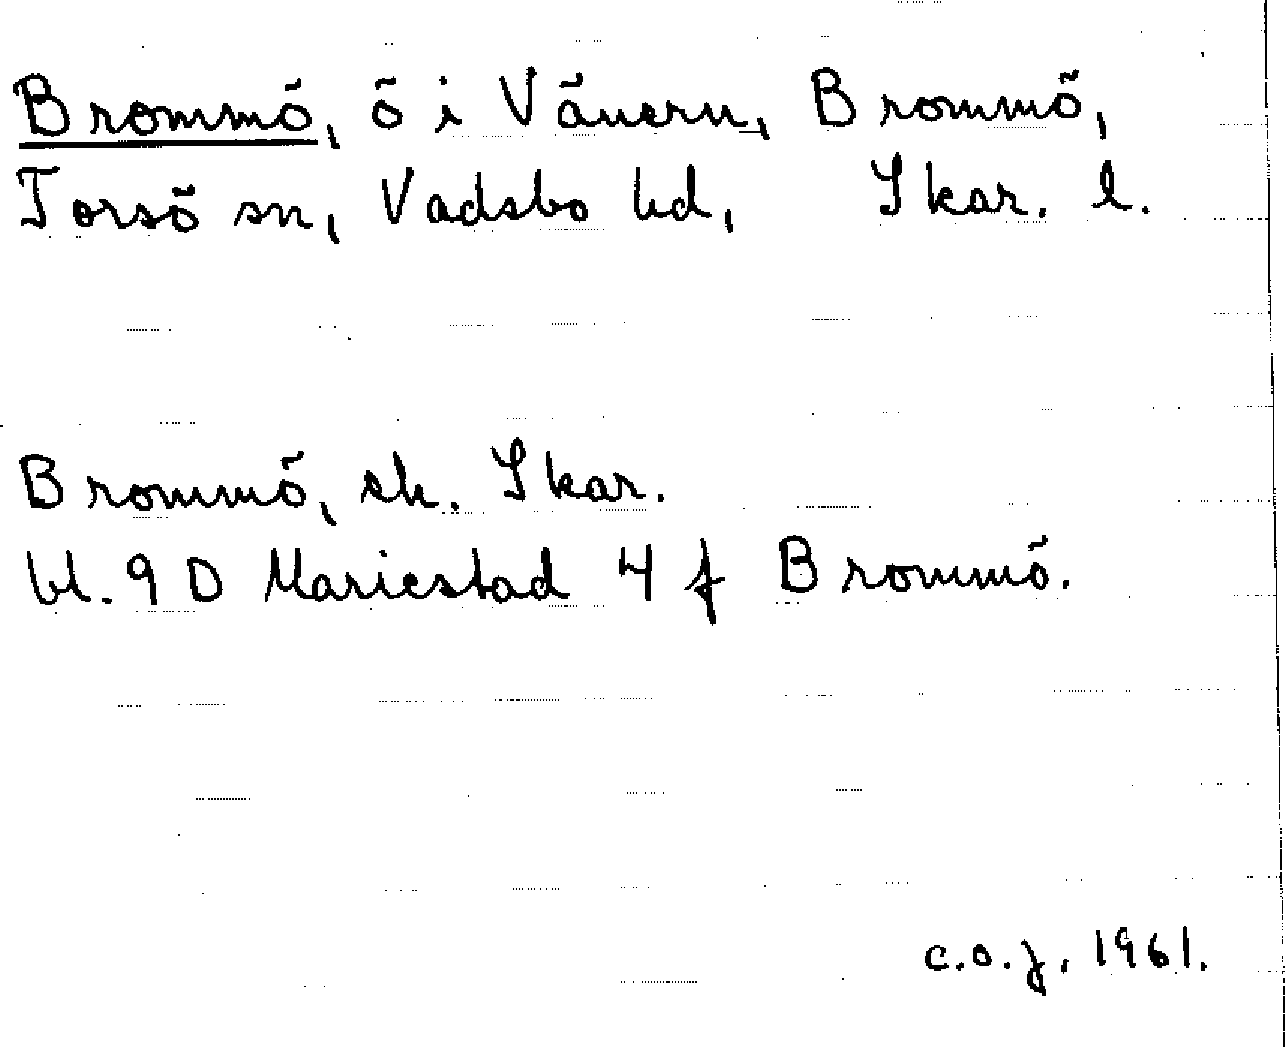 Brommö, ö i Vänern, Brommö,
Torsö sn, Vadsbo hd, Skar. l.
Brommö, sh. Skar.
bl. 9 D Mariestad 4 f Brommö.
c.o.j. 1961.